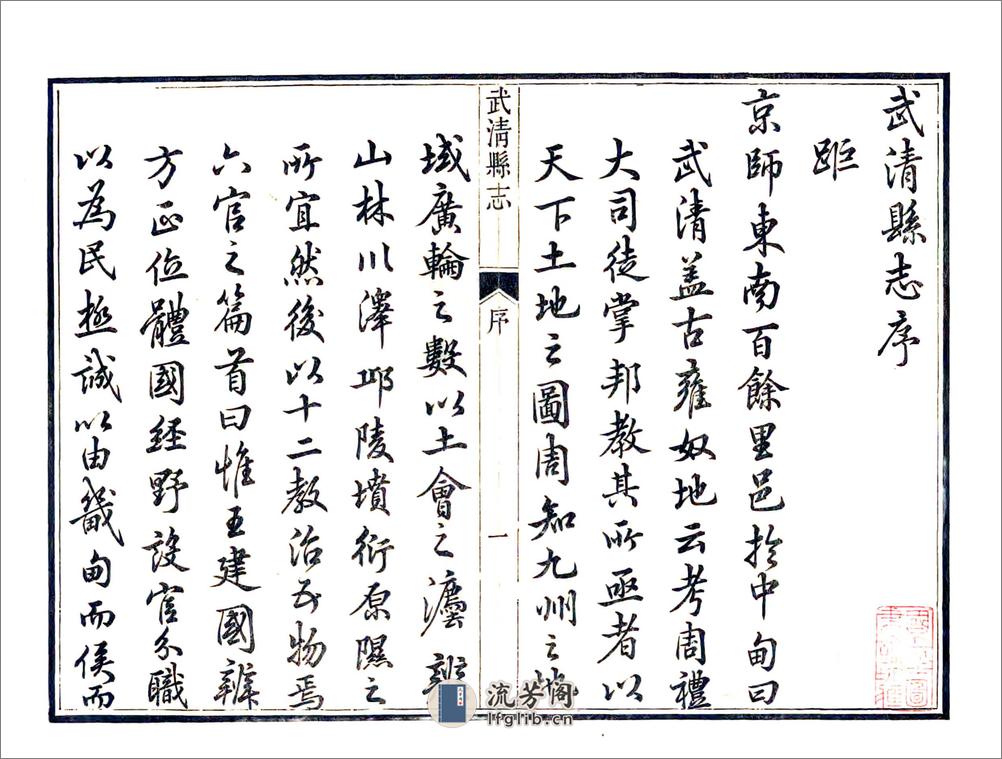 武清縣志序
距
京師東南百餘里邑扵中甸曰
武清盖古雍奴地云考周禮
大司徒掌邦教其所亟者以
天下土地之圖周知九州之地
武清縣志
序
一
域廣輪之數以土會之灋辨
山林川澤邱陵墳衍原隰之
所宜然後以十二教治五物焉
六官之篇首曰惟王建國辨
方正位體國經野設官分職
以為民極誠以由畿甸而侯而
流芳阁
lfglib.cn